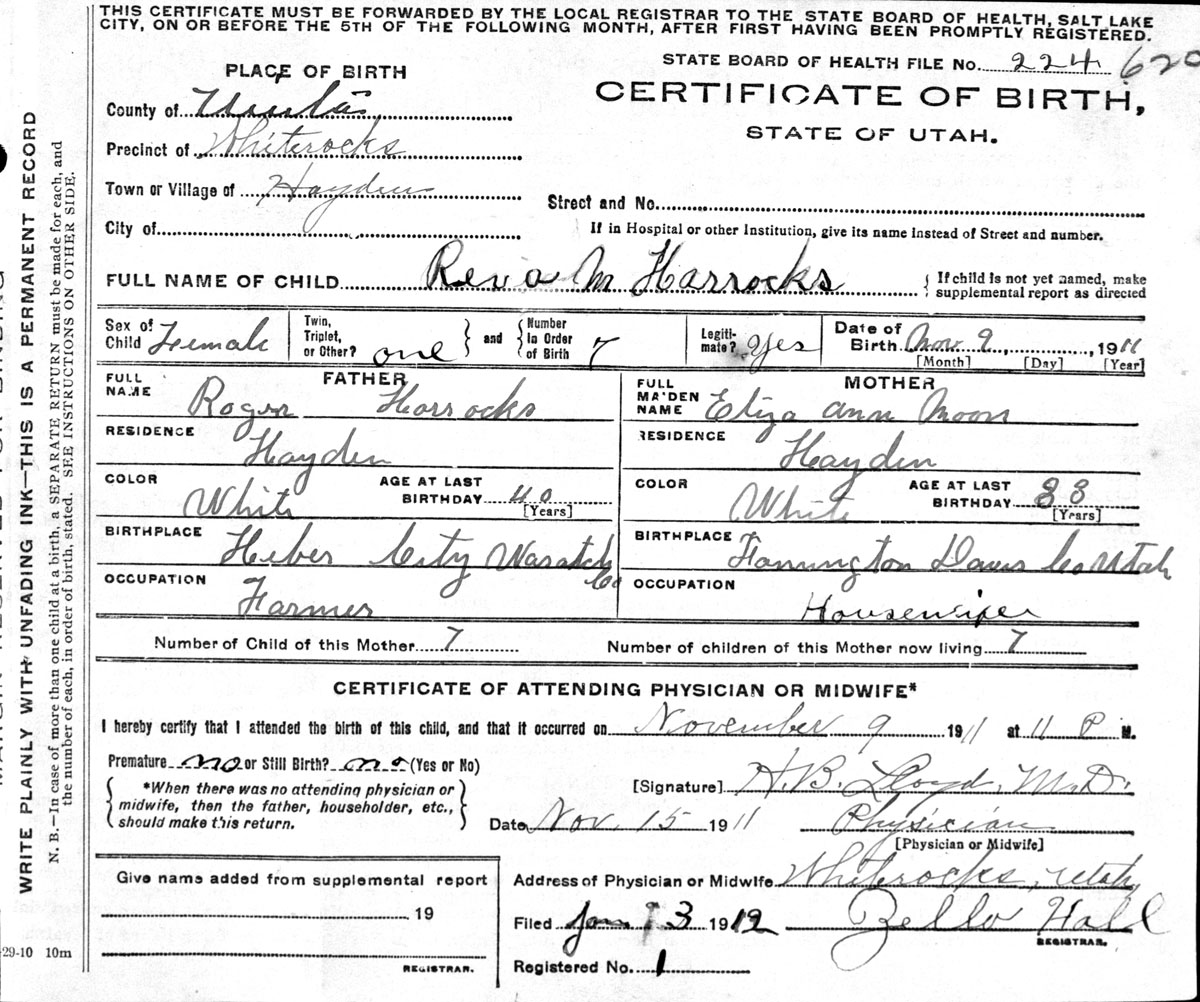 THIS CERTIFICATE MUST BE FORWARDED BY THE LOCAL REGISTRAR TO THE STATE BOARD OF HEALTH, SALT LAKE
CITY, ON OR BEFORE THE 5TH OF THE FOLLOWING MONTH, AFTER FIRST HAVING BEEN PROMPTLY REGISTERED.
STATE BOARD OF HEALTH FILE No. 224 620
PLACE OF BIRTH
CERTIFICATE OF BIRTH,
STATE OF UTAH.
County of
Precinct of Whiterocks
Town or Village of Hayden
Street and No.
City of
If in Hospital or other Institution, give its name instead of Street and number.
FULL NAME OF CHILD Reva M Harrocks
{ If child is not yet named, make
supplemental report as directed
Sex of Child Female
Twin, Triplet, or Other? one } and { Number in Order of Birth 7
Legitimate? Yes
Date of Birth Nov. 9, 1911
[Month] [Day] [Year]
FATHER
FULL NAME Roger Horrocks
MOTHER
FULL MAIDEN NAME Eliza Ann Moon
RESIDENCE Hayden
RESIDENCE Hayden
COLOR White
AGE AT LAST BIRTHDAY 40 [Years]
COLOR White
AGE AT LAST BIRTHDAY [Years]
BIRTHPLACE Heber City Wasatch Co
BIRTHPLACE Farmington Davis Co Utah
OCCUPATION Farmer
OCCUPATION Housewifer
Number of Child of this Mother 7
Number of children of this Mother now living 7
CERTIFICATE OF ATTENDING PHYSICIAN OR MIDWIFE*
I hereby certify that I attended the birth of this child, and that it occurred on November 9 1911 at 11 P M.
Premature no or Still Birth? no (Yes or No)
{ *When there was no attending physician or
midwife, then the father, householder, etc.,
should make this return. }
[Signature] H. B. Lloyd, M.D.
Date Nov. 15 1911
Physician
[Physician or Midwife]
Give name added from supplemental report
19
REGISTRAR.
Address of Physician or Midwife Whiterocks, Utah
Filed Jan 13 1912 Zello Hall
REGISTRAR.
Registered No. 1
-29-10 10m
WRITE PLAINLY WITH UNFADING INK—THIS IS A PERMANENT RECORD
N. B.—In case of more than one child at a birth, a SEPARATE RETURN must be made for each, and
the number of each, in order of birth, stated. SEE INSTRUCTIONS ON OTHER SIDE.